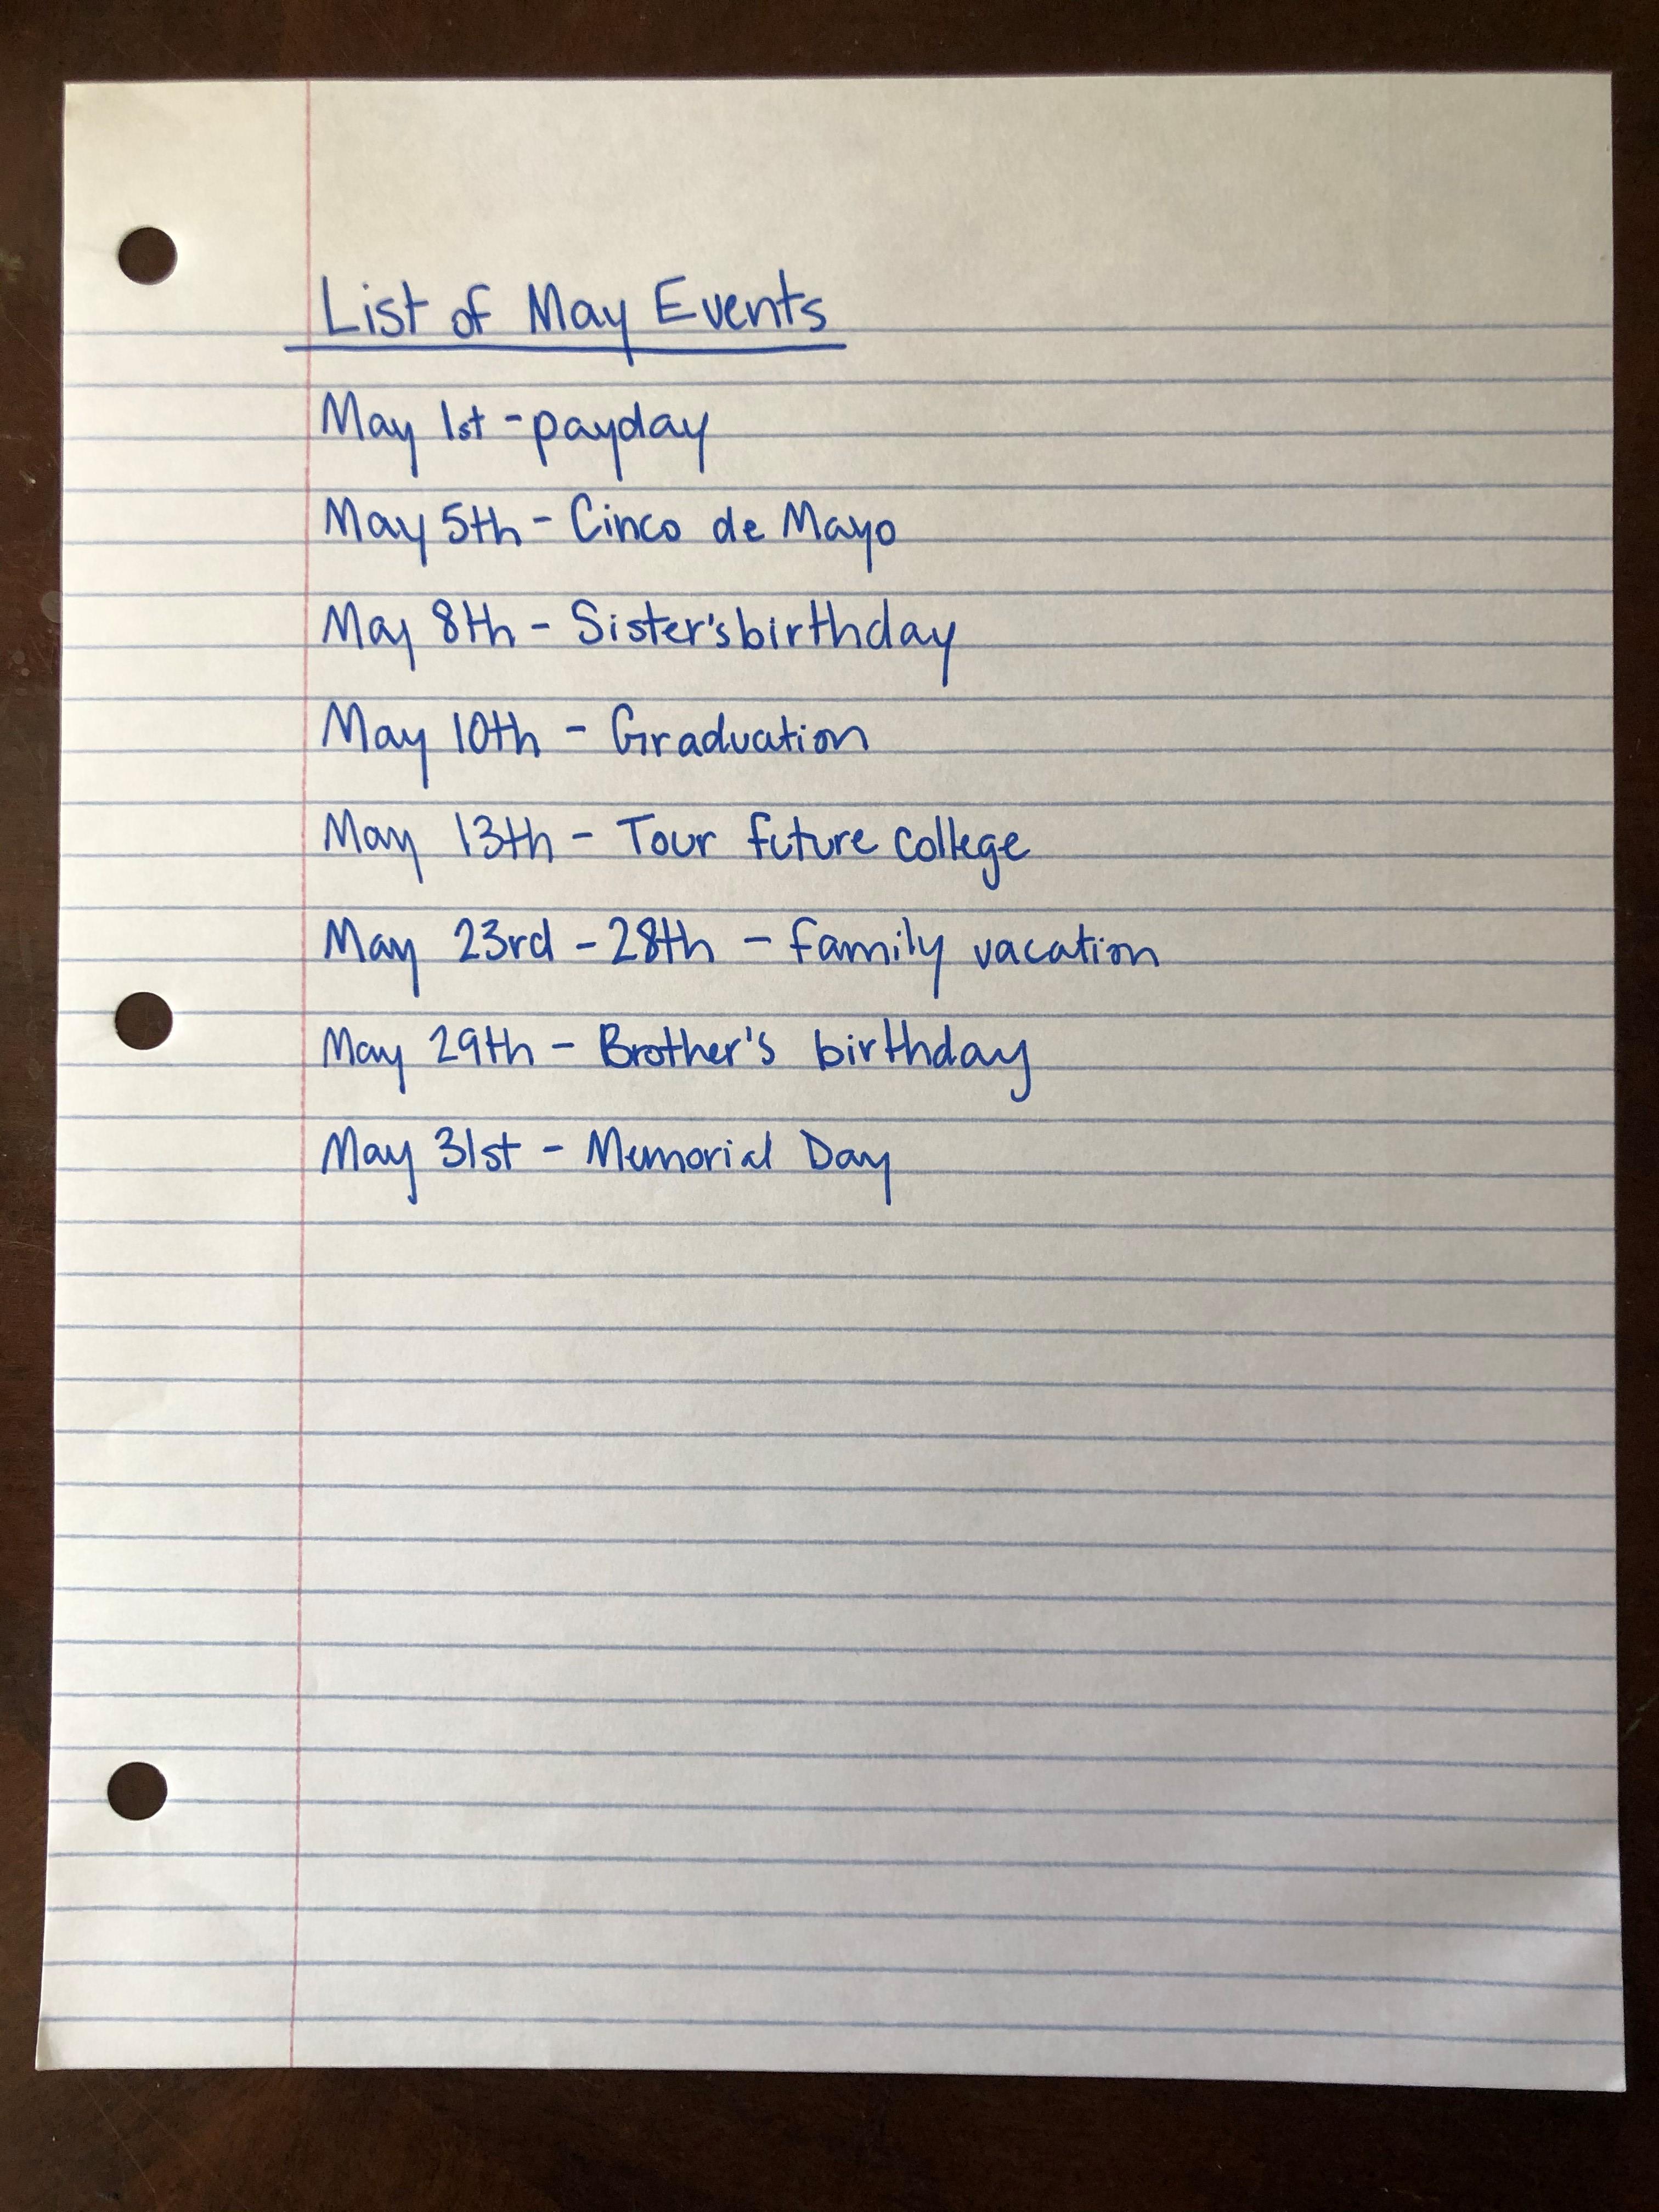 List of May Events
May 1st - payday
May 5th - Cinco de Mayo
May 8th - Sister's birthday
May 10th - Graduation
May 13th - Tour future college
May 23rd - 28th - family vacation
May 29th - Brother's birthday
May 31st - Memorial Day